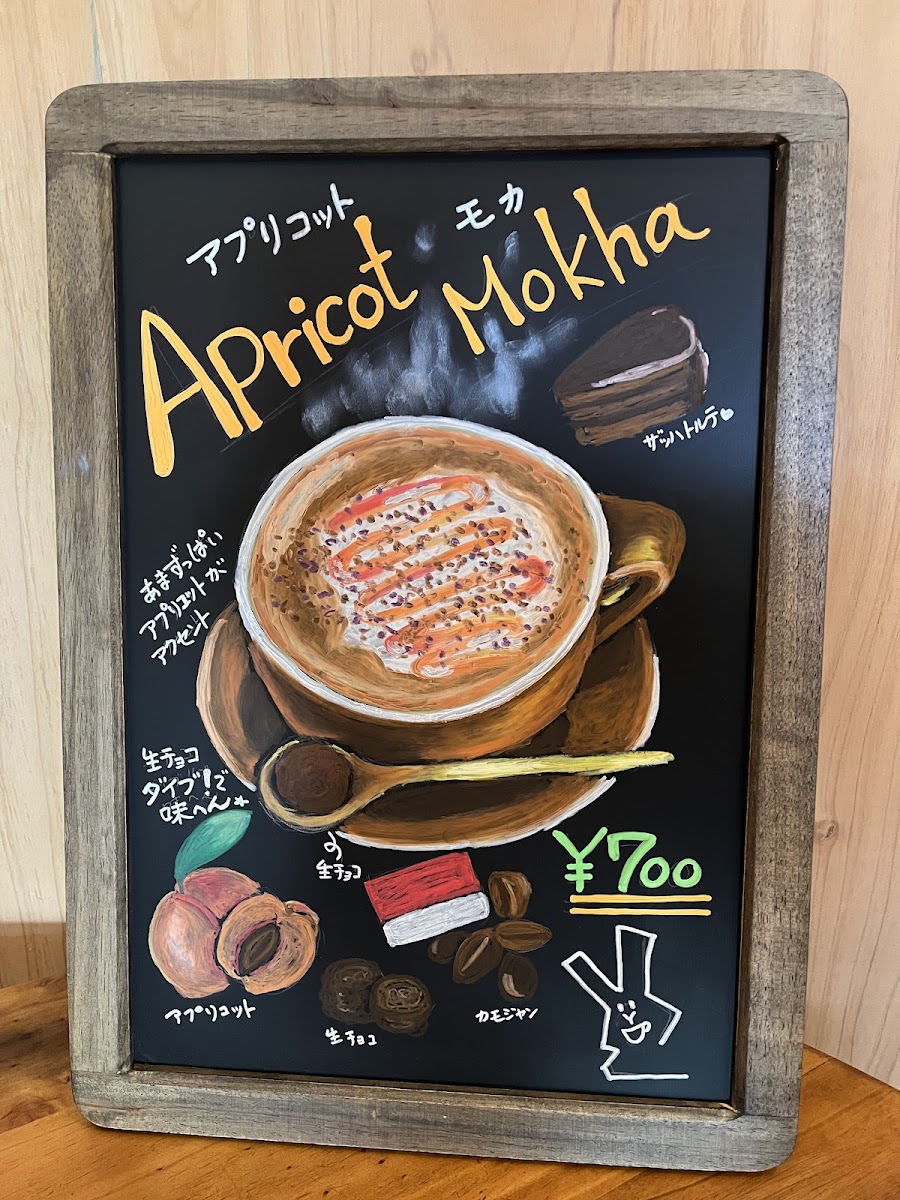 アプリコット モカ
Apricot Mokha
ザッハトルテ♥
あまずっぱい
アプリコットが
アクセント
生チョコ
ダイブ!で
味へん★
生チョコ
¥700
アプリコット
生チョコ
カモジャン